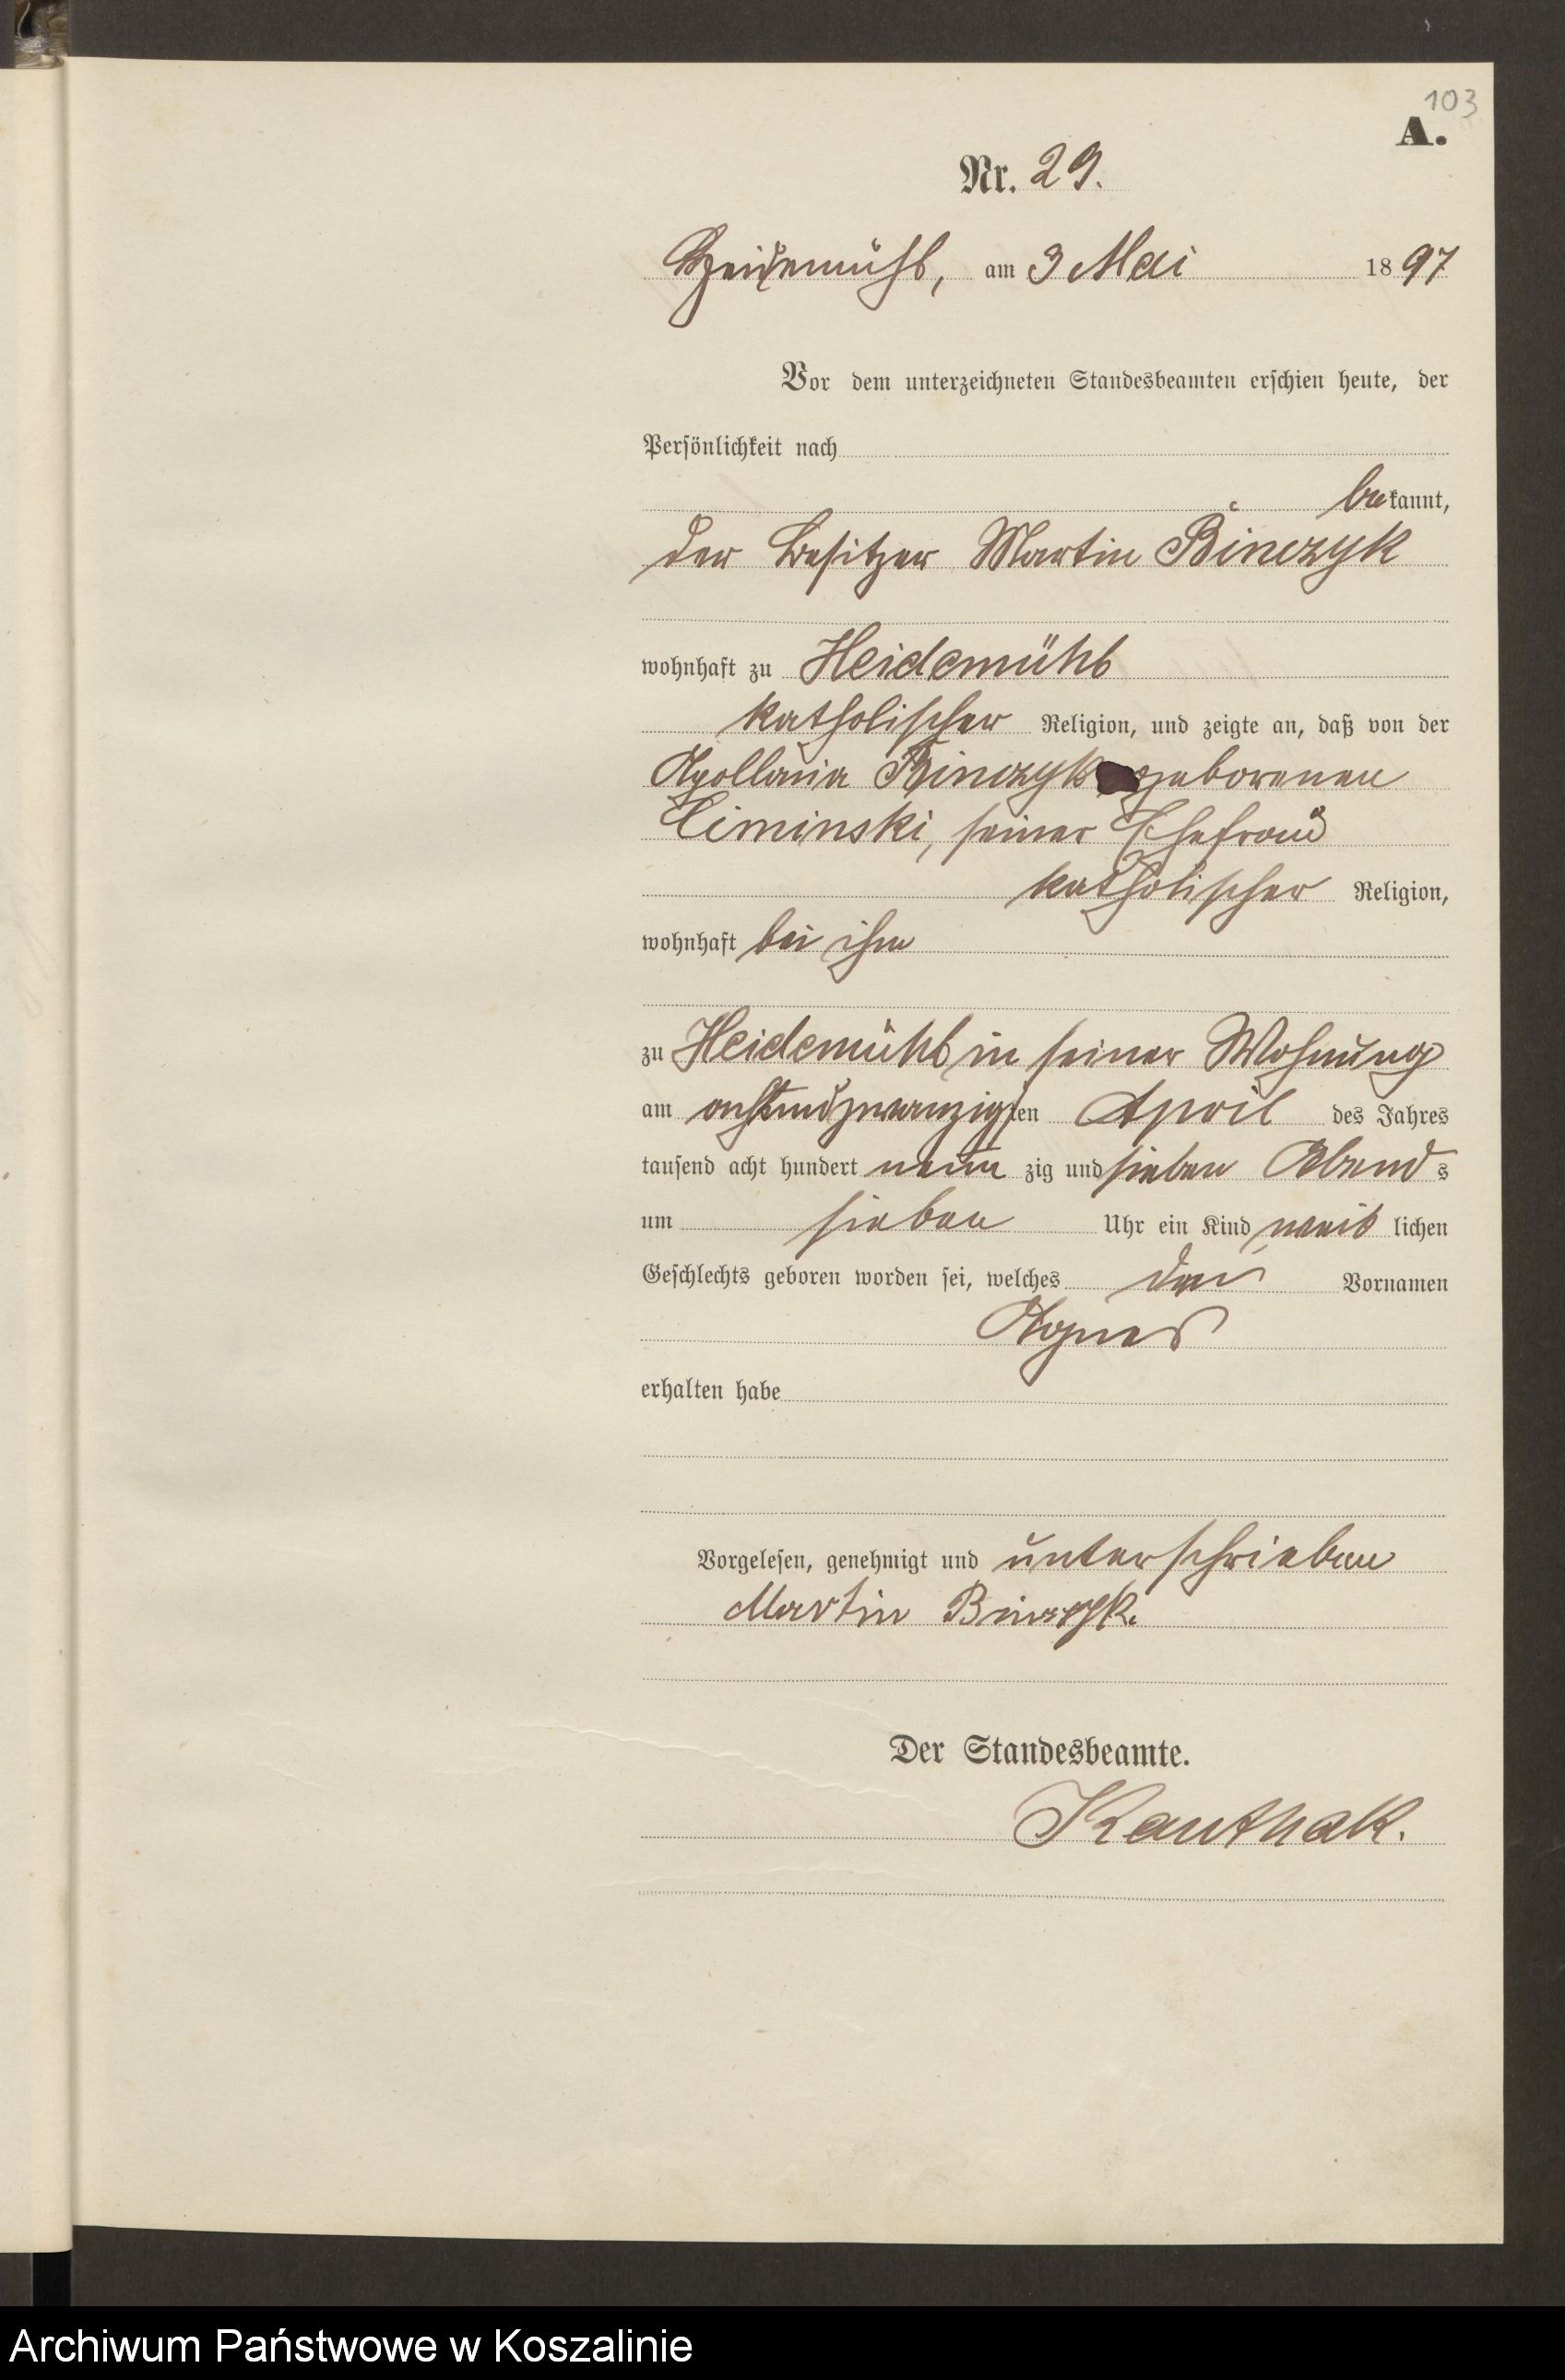 103
A.
Nr. 29.
Heidemühl, am 3 Mai 1897
Vor dem unterzeichneten Standesbeamten erschien heute, der
Persönlichkeit nach
bekannt,
der Besitzer Martin Binczyk
wohnhaft zu Heidemühl
katholischer Religion, und zeigte an, daß von der
Apollonia Binczyk geborenen
Ciminski, seiner Ehefrau
katholischer Religion,
wohnhaft bei ihm
zu Heidemühl in seiner Wohnung
am achtundzwanzigsten April des Jahres
tausend acht hundert neunzig und sieben Abends
um sieben Uhr ein Kind weiblichen
Geschlechts geboren worden sei, welches den Vornamen
Agnes
erhalten habe
Vorgelesen, genehmigt und unterschrieben
Martin Binczyk.
Der Standesbeamte.
Kauthak.
Archiwum Państwowe w Koszalinie